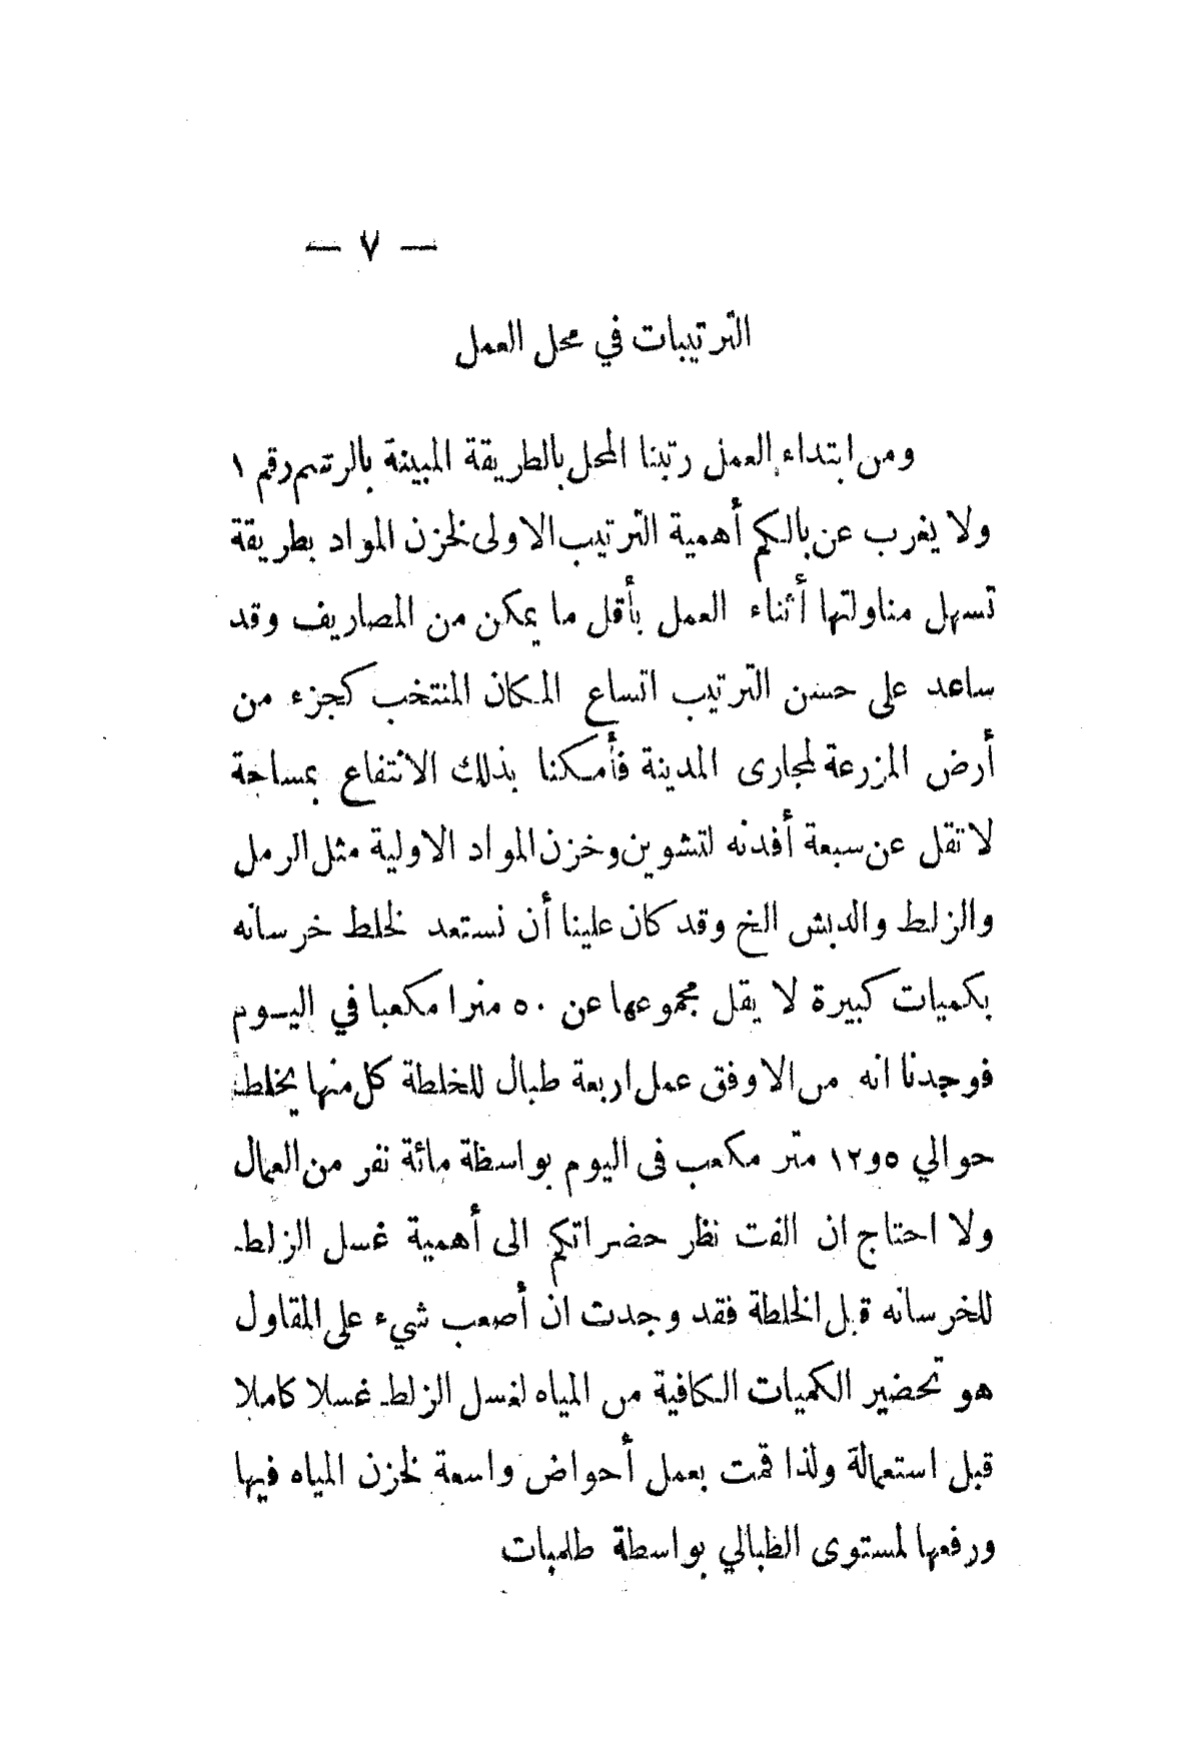 — ٧ —
الترتيبات في محل العمل
ومن ابتداء العمل رتبنا المحل بالطريقة المبينة بالرسم رقم ١
ولا يغرب عن بالكم أهمية الترتيب الاولى لخزن المواد بطريقة
تسهل مناولتها أثناء العمل بأقل ما يمكن من المصاريف وقد
ساعد على حسن الترتيب اتساع المكان المنتخب كجزء من
أرض المزرعة لمجارى المدينة فأمكننا بذلك الانتفاع بمساحة
لا تقل عن سبعة أفدنه لتشوين وخزن المواد الاولية مثل الرمل
والزلط والدبش الخ وقد كان علينا أن نستعد لخلط خرسانه
بكميات كبيرة لا يقل مجموعها عن ٥٠ مترا مكعبا في اليوم
فوجدنا انه من الاوفق عمل اربعة طبال للخلطة كل منها يخلط
حوالي ١٢و٥ متر مكعب فى اليوم بواسطة مائة نفر من العمال
ولا احتاج ان الفت نظر حضراتكم الى أهمية غسل الزلط
للخرسانه قبل الخلطة فقد وجدت ان أصعب شيء على المقاول
هو تحضير الكميات الكافية من المياه لغسل الزلط غسلا كاملا
قبل استعمالة ولذا قمت بعمل أحواض واسعة لخزن المياه فيها
ورفعها لمستوى الطبالي بواسطة طلمبات